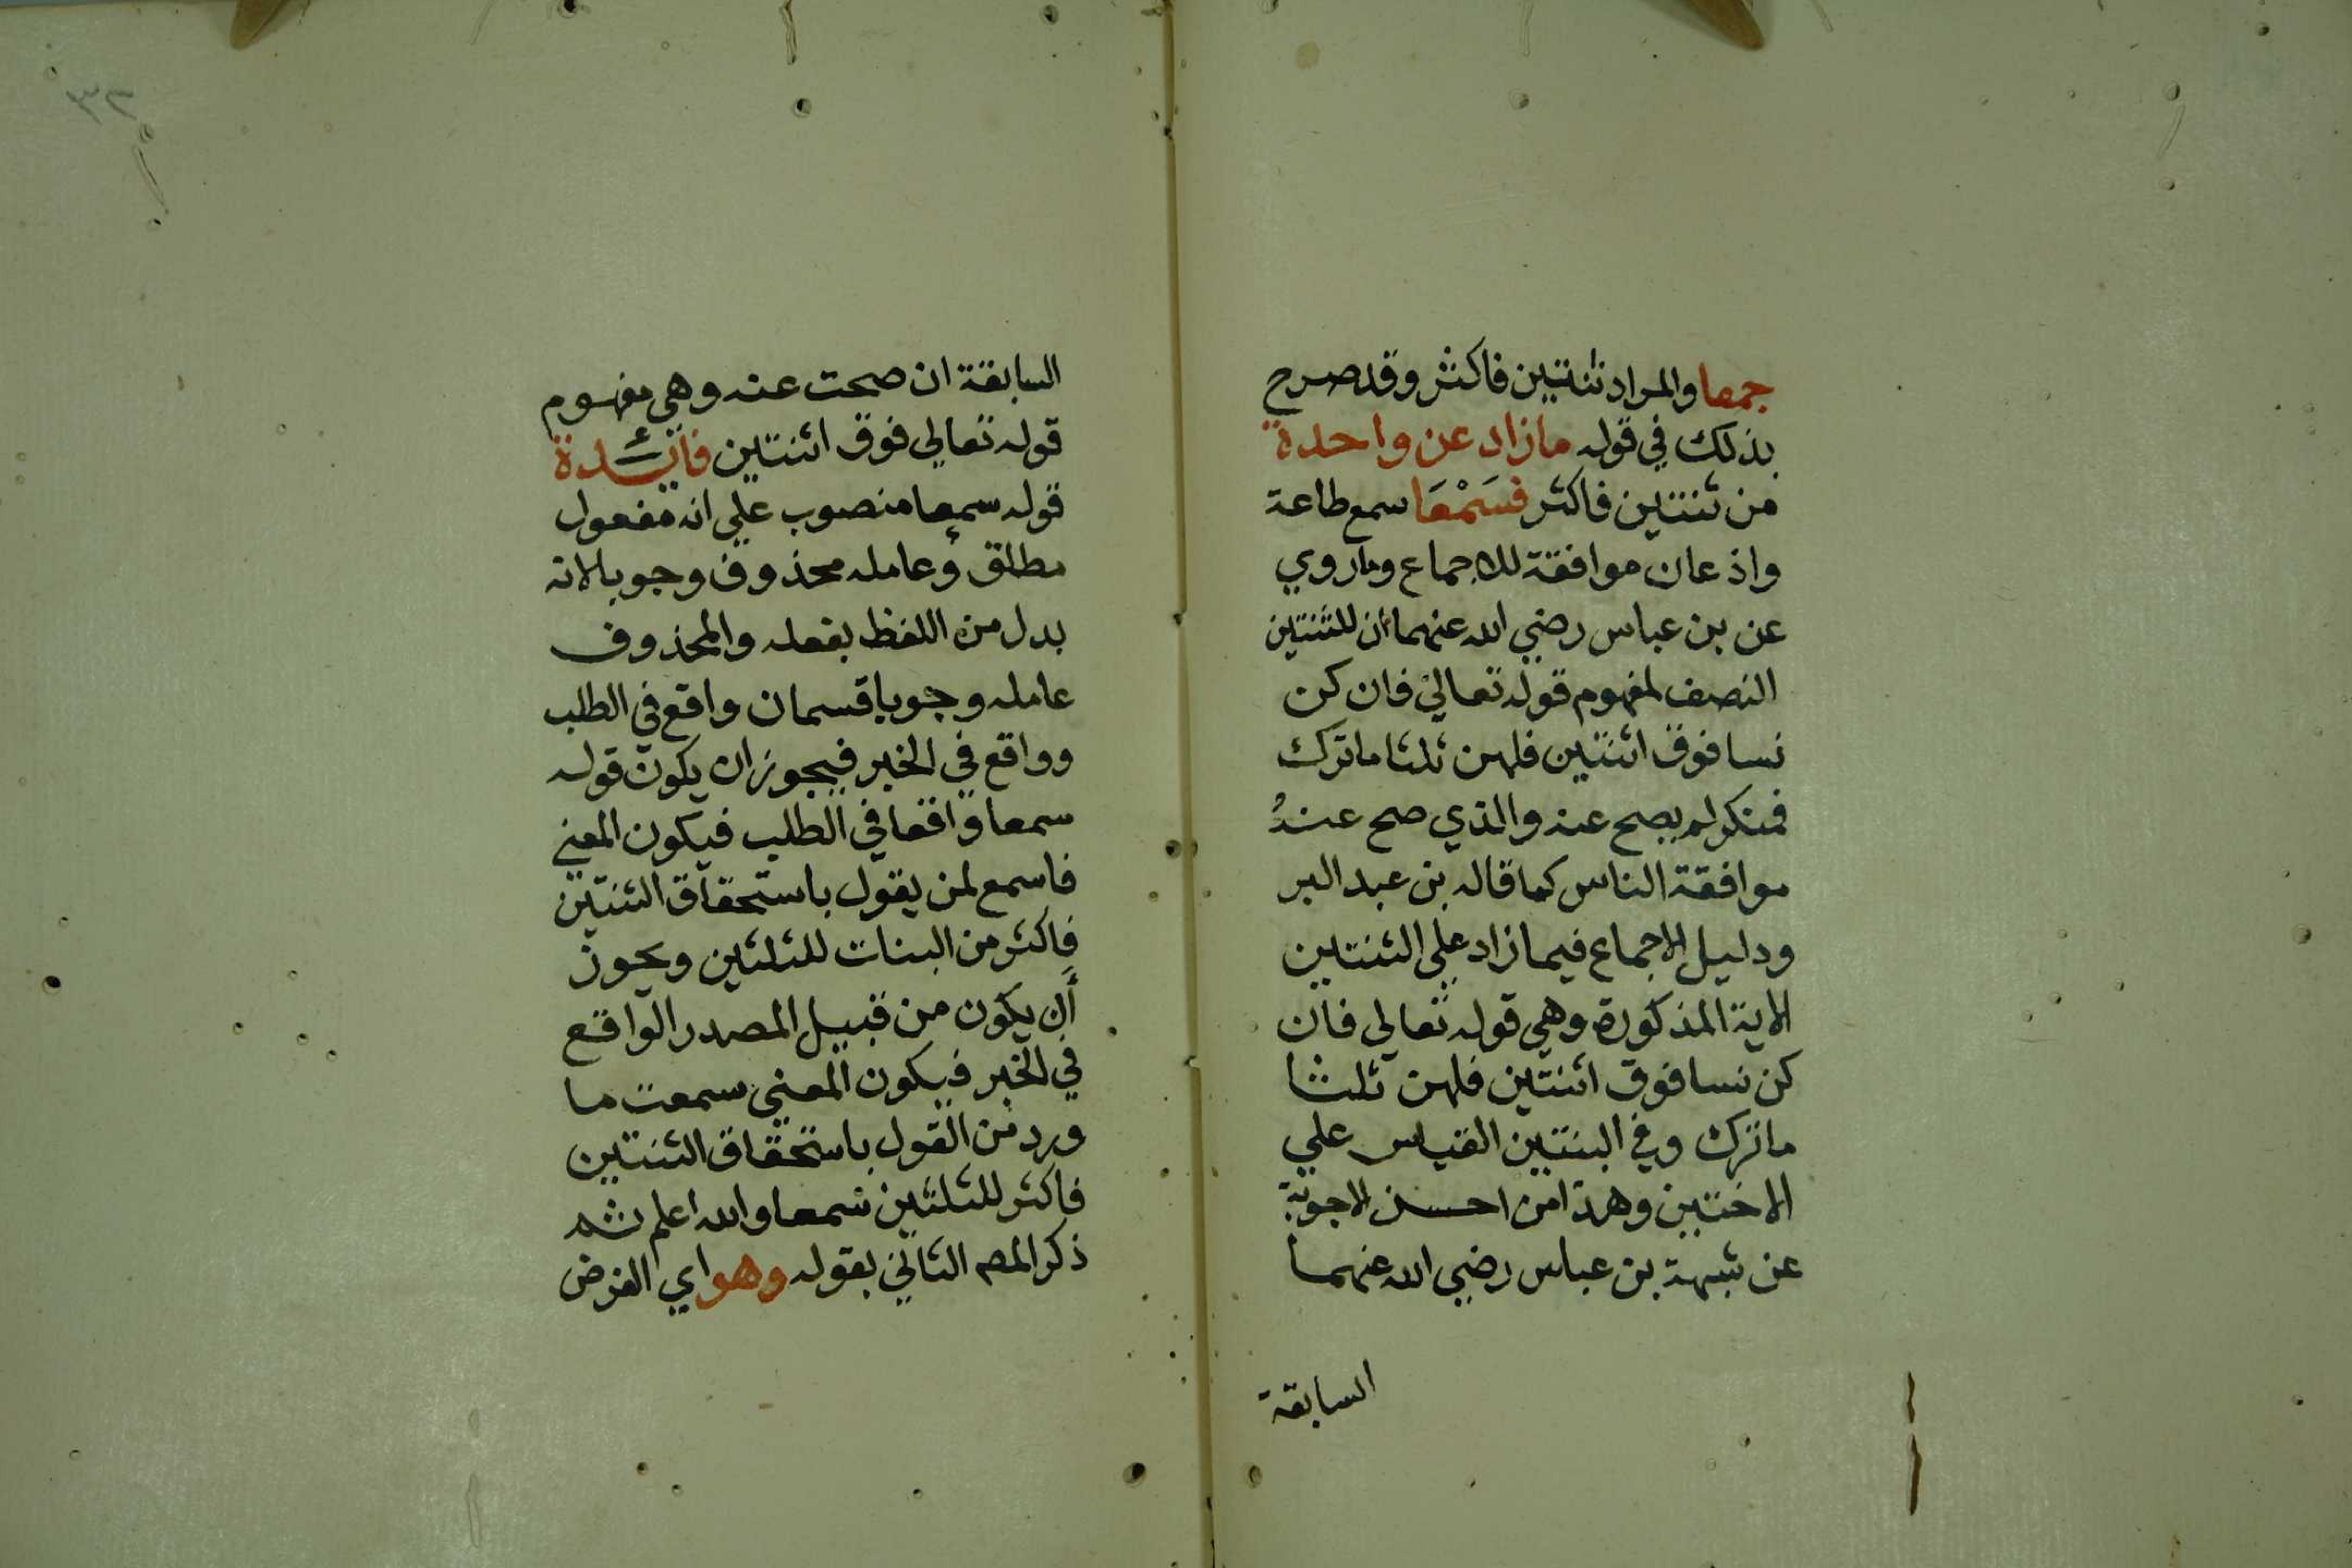 جمعا والمراد ثنتين فاكثر وقد صرح
بذلك في قوله ما زاد عن واحدة
من ثنتين فاكثر فسَمْعَا سمع طاعة
واذعان موافقة للاجماع وما روي
عن بن عباس رضي الله عنهما أن للثنتين
النصف لمفهوم قوله تعالي فان كن
نسا فوق اثنتين فلهن ثلثا ما ترك
فمنكر لم يصح عنه والذي صح عنهُ
موافقة الناس كما قاله بن عبد البر
ودليل الاجماع فيما زاد علي الثنتين
الاية المذكورة وهي قوله تعالي فان
كن نسا فوق اثنتين فلهن ثلثا
ما ترك وفي البنتين القياس علي
الاختين وهذا من احسن الاجوبة
عن شبهة بن عباس رضي الله عنهما
السابقة
٣٢
السابقة ان صحت عنه وهي مفهوم
قوله تعالي فوق اثنتين فائدة
قوله سمعا منصوب علي انه مفعول
مطلق وعامله محذوف وجوبا لانه
بدل من اللفظ بفعله والمحذوف
عامله وجوبا قسمان واقع في الطلب
وواقع في الخبر فيجوز ان يكون قوله
سمعا واقعا في الطلب فيكون المعني
فاسمع لمن يقول باستحقاق الثنتين
فاكثر من البنات للثلثين ويجوز
أن يكون من قبيل المصدر الواقع
في الخبر فيكون المعني سمعت ما
ورد من القول باستحقاق الثنتين
فاكثر للثلثين سمعا والله اعلم ثم
ذكر المص الثاني بقوله وهو اي الفرض